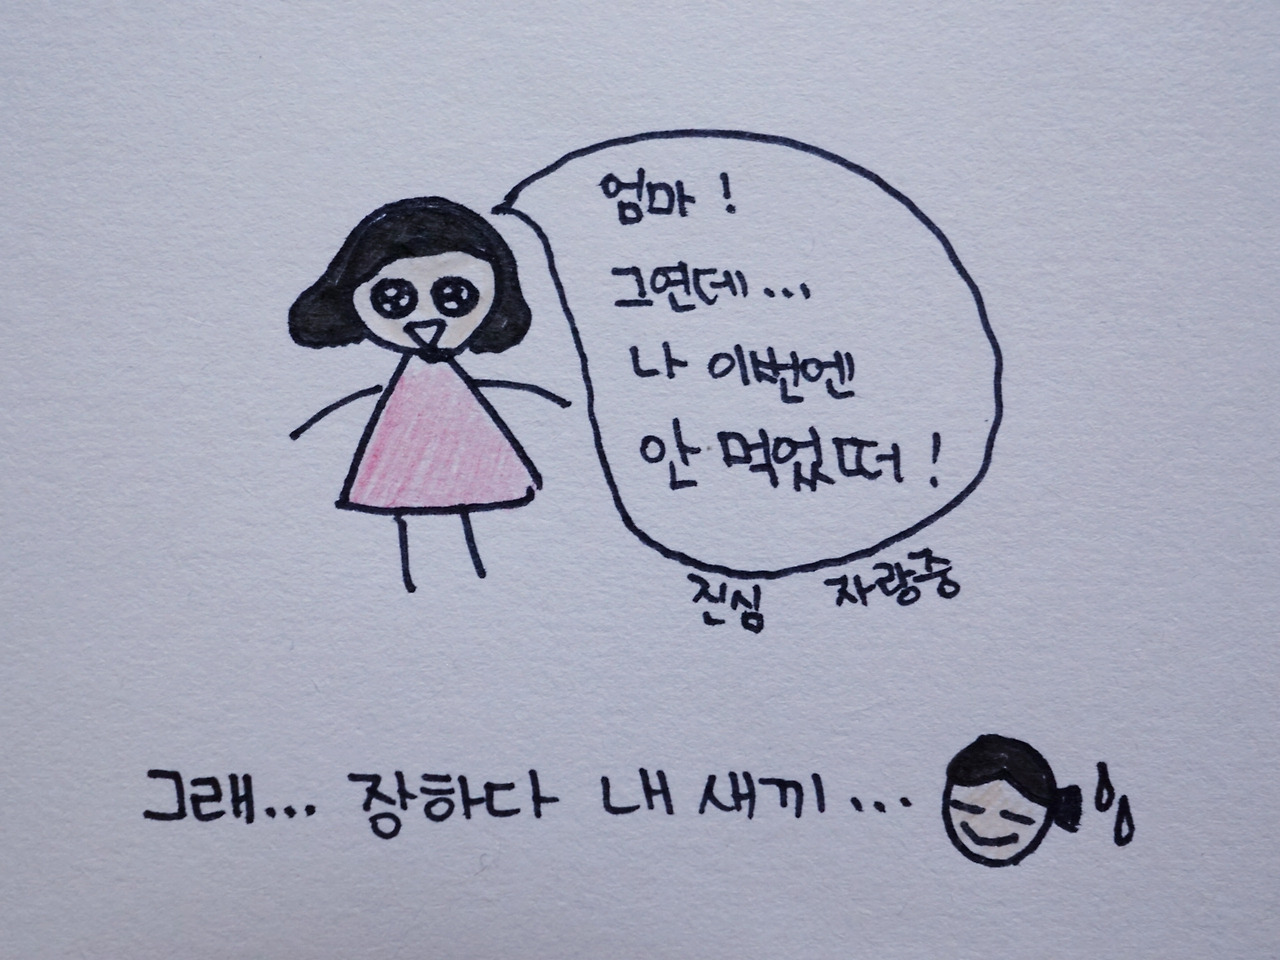 엄마!
그연데...
나 이번엔
안 먹었떠!
진심 자랑중
그래... 장하다 내 새끼...